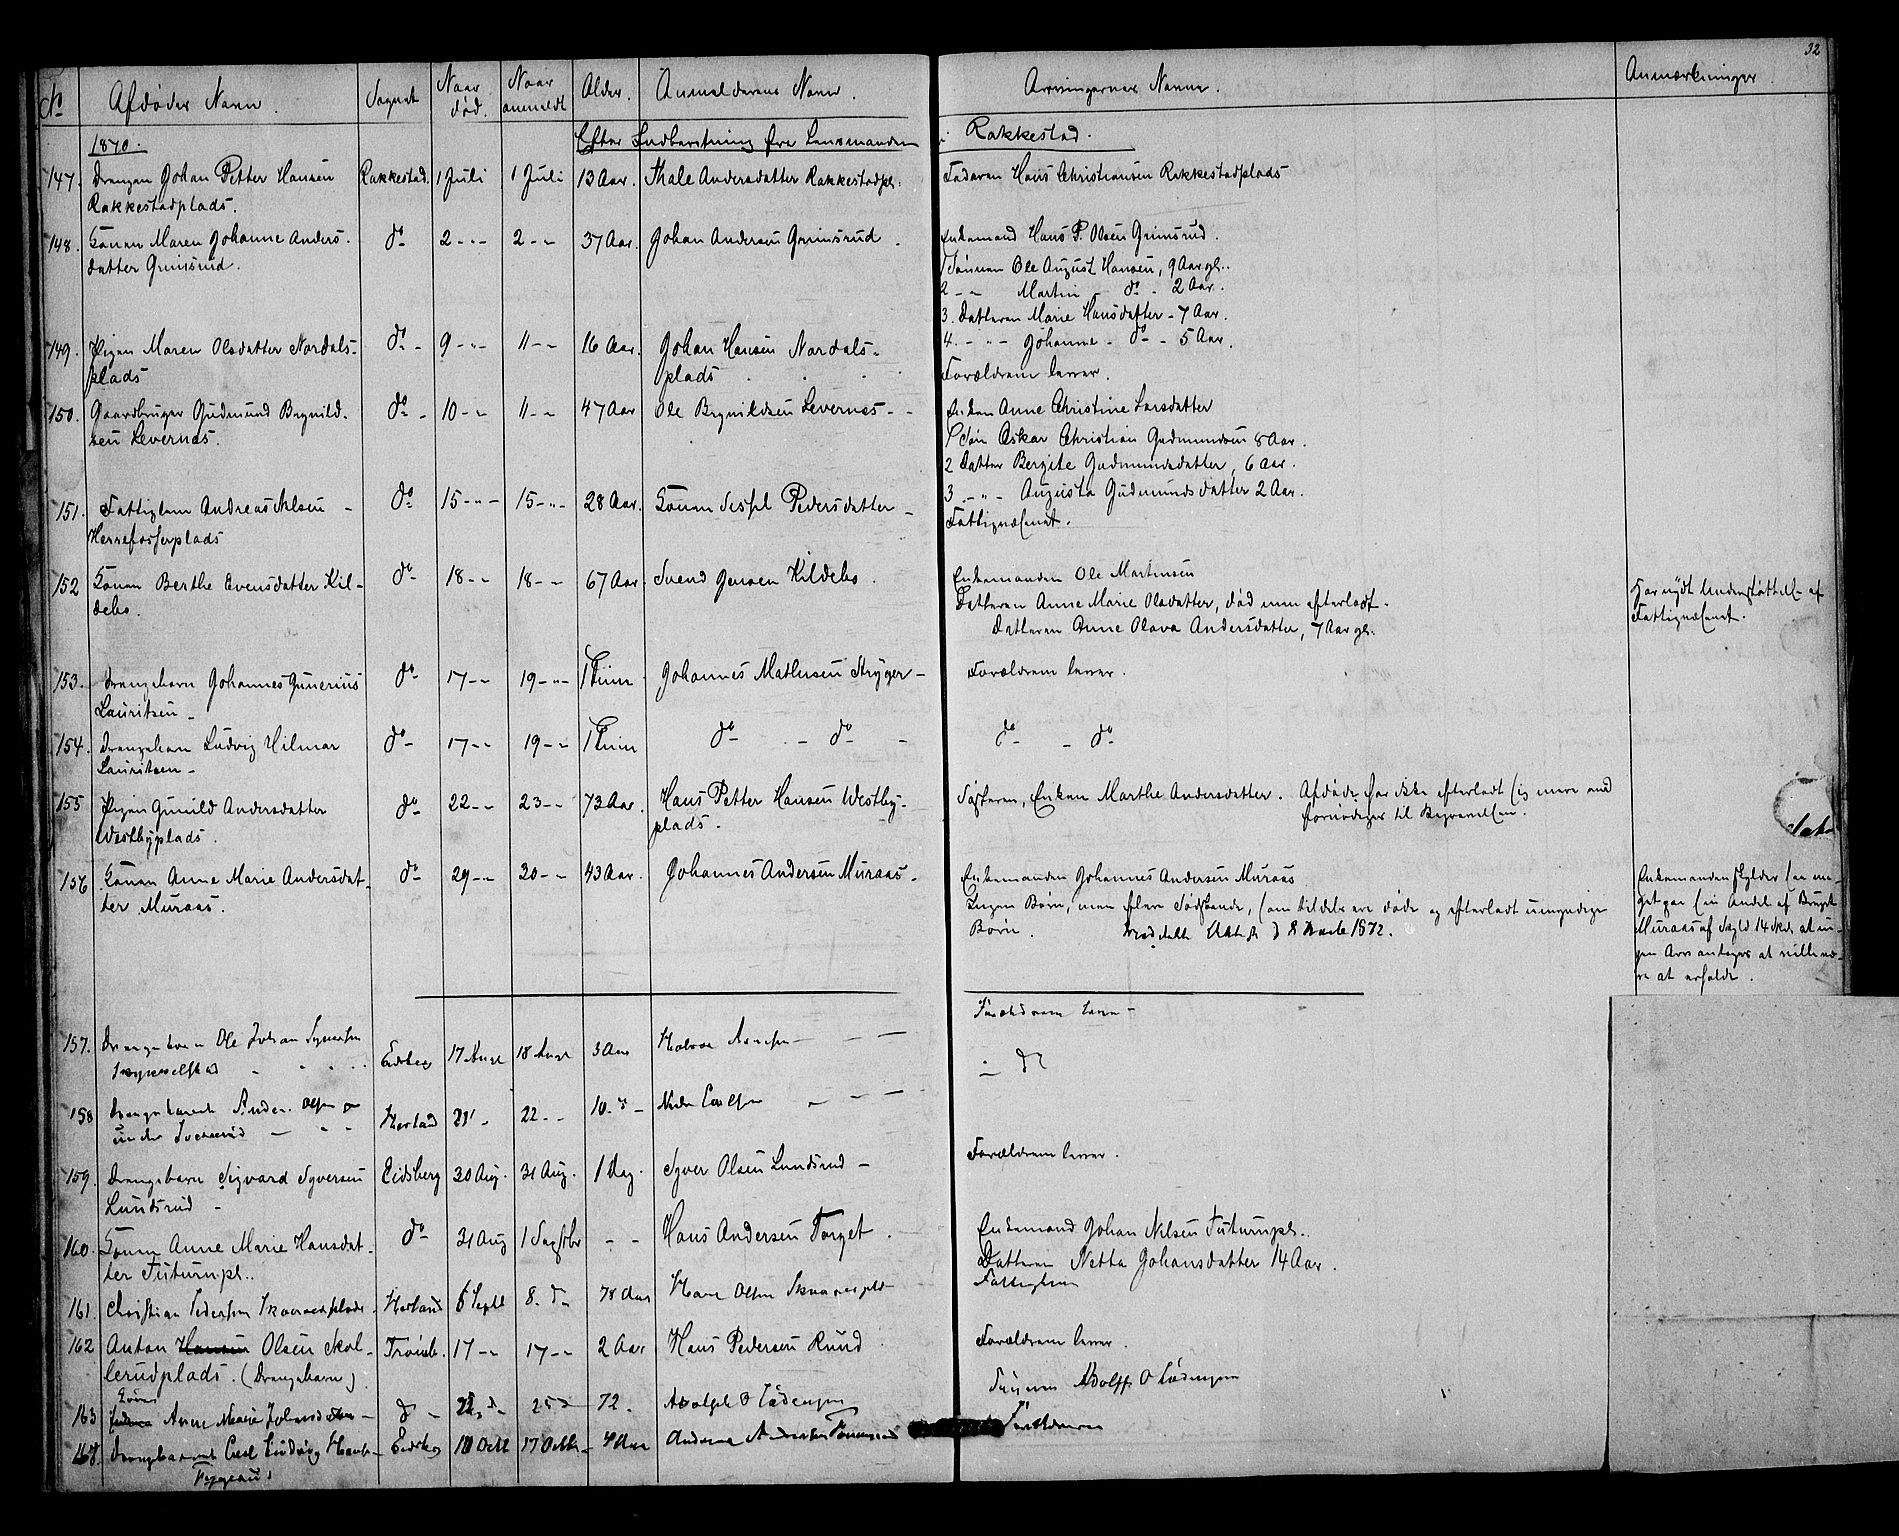 32
No Afdødes Navn. Sognet Naar død. Naar anmeldt Alder. Anmelderens Navn. Arvingernes Navne. Anmærkninger
1870. Efter Indberetning fra Lensmanden i Rakkestad.
147. Drengen Johan Petter Hansen Rakkestad. 1 Juli 1 Juli 13 Aar. Thale Andersdatter Rakkestadpl. Faderen Hans Christiansen Rakkestadplads
Rakkestadplads.
148. Konen Maren Johanne Anders- do 2 - - 2 - - 37 Aar. Johan Andersen Grimsrud. Enkemand Hans P. Olsen Grimsrud.
datter Grimsrud.
1 Sønnen Ole August Hansen, 9 Aar gl.
2 - - Martin - do - 2 Aar.
3. Datteren Marie Hansdatter - 7 Aar.
149. Pigen Maren Olsdatter Nordals- do - 9 - - 11 - - 16 Aar. Johan Hansen Nordals-
4. - - Johanne - do - 5 Aar.
plads plads Forældrene lever.
150. Gaardbruger Gudmund Brynild- do - 10 - - 11 - - 47 Aar Ole Brynildsen Levernes - Enken Anne Christine Larsdatter
sen Levernes.
1 Søn Oskar Christian Gudmundsen 8 Aar.
2 Datter Bergite Gudmundsdatter, 6 Aar.
3 - - Augusta Gudmundsdatter 2 Aar.
151. Fattiglem Andreas Nilsen - do 15 - - 15 - - 28 Aar. Konen Pedersdatter - Fattigvæsenet.
Herrefosserplads
152 Konen Berthe Evensdatter Kil- do 18 - - 18 - - 67 Aar. Svend Jensen Kildebo. Enkemanden Ole Martinsen
debo.
Datteren Anne Marie Olsdatter, død men efterladt
Datteren Anne Olava Andersdatter, 7 Aar gl.
Har nydt Understøttelse af
Fattigvæsenet.
153. Drengebarn Johannes Gunerius do 17 - - 19 - - 1 Time Johannes Mathesen Stryger - Forældrene lever.
Lauritsen -
154. Drengebarn Ludvig Hilmar do 17 - - 19 - - 1 Time do - do - do - do
Lauritsen -
155 Pigen Gunild Andersdatter do 22 - - 23 - - 73 Aar. Hans Petter Hansen Westby- Søsteren, Enken Marthe Andersdatter. Afdøde har ikke efterladt sig mere end
Westbyplads. plads. fornødiges til Begravelsen.
156 Konen Anne Marie Andersdat- do 29 - - 30 - - 43 Aar. Johannes Andersen Muraas - Enkemanden Johannes Andersen Muraas
ter Muraas.
Ingen Børn, men flere Sødskende, som tildels ere døde og efterladt umyndige
Børn. 1872.
Enkemanden skylder saa me-
get paa sin Andel af Bruget
Muraas af Skyld 14 Sk. at in-
gen Arv antages at ville væ-
re at erholde.
157. Drengebarn Ole Johan Syversen Eidsberg 17 Aug 18 Aug 3 Aar Forældrene lever -
158 Drengebarnet Anders Olsen Herland 21 - 22 - - 10 - do
159. Drengebarn Sigvard Syversen Eidsberg 30 Aug. 31 Aug. 1 Dag. Syver Olsen Lundsrud - Forældrene lever.
Lundsrud -
160. Konen Anne Marie Hansdat- do 31 Aug 1 Septbr - - Hans Andersen Torget. Enkemand Johan Nilsen Tuturnpl.
ter Tuturnpl. Datteren Netta Johansdatter 14 Aar.
161. Christian Pedersen Herland 6 Septb 8. do 78 Aar Hans Olsen Fattiglem
162 Anton Hansen Olsen Skol- Trømb. 17 - - 17 - - 2 Aar Hans Pedersen Ruud Forældrene lever.
lerudplads. (Drengebarn)
163 Konen Anne Marie do - 25 72. Adolph O Adolff O
164. Drengebarnet Carl Ludvig Eidsberg 10 Octb 17 Octb 4 Aar Forældrene